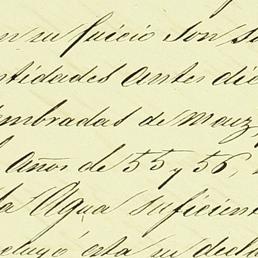 su juicio son
tidades antes di
mbradas de maiz,
años de 55 y 56,
Agua suficien
esta su decla